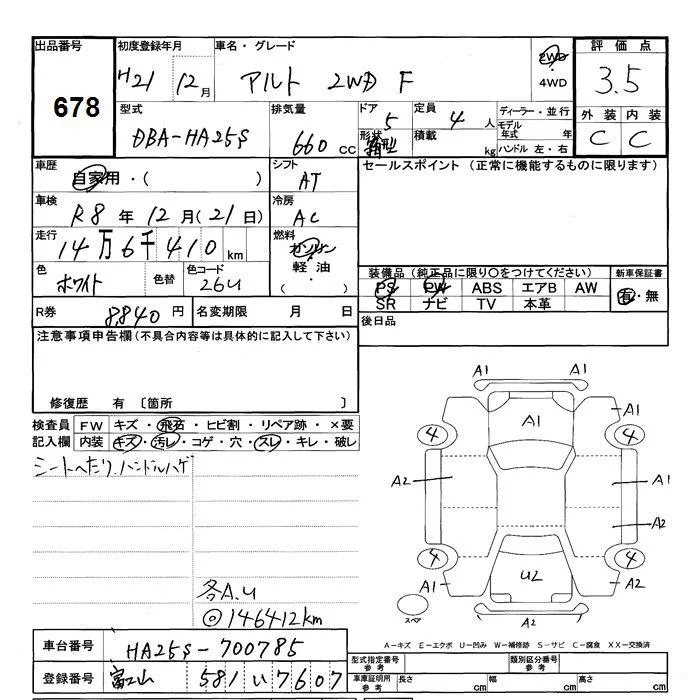 出品番号
678
初度登録年月
H21 12月
車名・グレード
アルト 2WD F
2WD
4WD
評価点
3.5
外装 内装
C C
型式
DBA-HA25S
排気量
660 cc
ドア 5
形状 箱型
定員 4 人
積載 kg
ディーラー・並行
モデル年式 年
ハンドル 左・右
車歴
自家用・( )
シフト
AT
セールスポイント (正常に機能するものに限ります)
車検
R8年12月(21日)
冷房
AC
走行
14万6千410km
燃料
ガソリン
・
軽油
( )
色
ホワイト
色替
色コード
26U
装備品 (純正品に限り○をつけてください)
PS PW ABS エアB AW
SR ナビ TV 本革
新車保証書
有・無
R券 8,840円
名変期限 月 日
後日品
注意事項申告欄(不具合内容等は具体的に記入して下さい)
修復歴 有 〔箇所 〕
検査員記入欄
FW キズ・飛石・ヒビ割・リペア跡・×要
内装 キズ・汚レ・コゲ・穴・スレ・キレ・破レ
シートへたり、ハンドルハゲ
各A.U
◎146412km
A1 A1
A1 A1
4 4
A2 A1
A2
4 4
A1 U2 A2
A2
スペア
A-キズ E-エクボ U-凹み W-補修跡 S-サビ C-腐食 XX-交換済
車台番号
HA25S-700785
登録番号
富山 581 い 7607
型式指定番号 参考
類別区分番号 参考
車庫証明用 参考
長さ cm
幅 cm
高さ cm